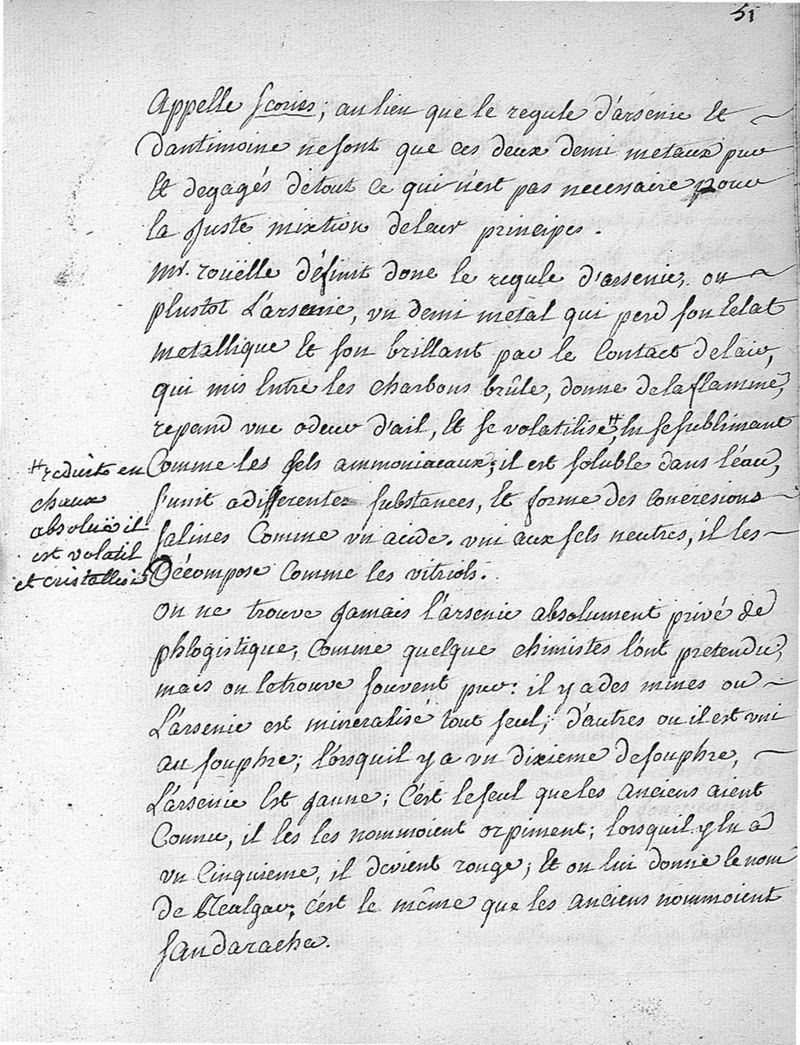 51
Appelle scories; au lieu que le regule d'arsenic Et
d'antimoine ne sont que ces deux demi metaux pur
Et degagés de tout ce qui n'est pas necessaire pour
la juste mixtion de leur principes.
Mr. roüelle définit donc le regule d'arsenic, ou
plustot L'arsenic, vn demi metal qui perd son Eclat
metallique Et son brillant par le Contact de l'air,
qui mis Entre les charbons brûle, donne de la flamme,
repand vne odeur d'ail, Et se volatilise, # En se sublimant
Comme les sels ammoniacaux; il est soluble dans l'eau,
s'unit a differentes substances, Et forme des Concrésions
salines Comme vn acide. vni aux sels neutres, il les
Décompose Comme les vitriols.
# reduite en
chaux
absoluë il
est volatil
et cristallisé
on ne trouve jamais l'arsenic absolument privé de
phlogistique, Comme quelque chimistes l'ont pretendu,
mais on le trouve souvent pur: il y a des mines ou
L'arsenic est mineralisé tout seul; d'autres ou il est vni
au souphre; lorsquil y a vn dixieme de souphre,
L'arsenic Est jaune; C'est le seul que les anciens aient
Connu, il les les nommoient orpiment; lorsquil y En a
vn Cinquieme, il devient rouge; Et on lui donne le nom
de Realgar; c'est le même que les anciens nommoient
sandaracha.